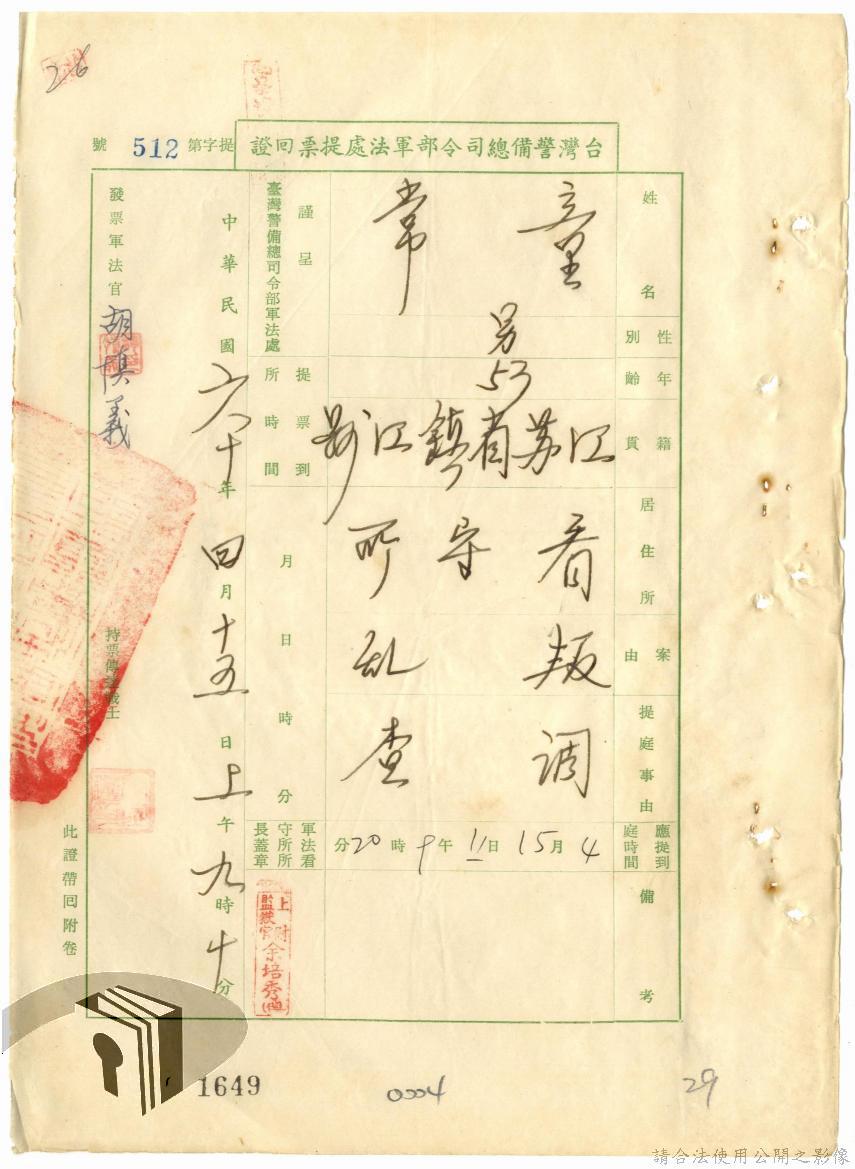 26
台灣警備總司令部軍法處提票回證
提字第 512 號
姓名
童常
性別
男
年齡
53
籍貫
江苏省鎮江县
居住所
看守所
案由
叛乱
提庭事由
调查
應提到庭時間
4月15日上午9時20分
備考
謹呈
臺灣警備總司令部軍法處
提票到所時間
月日時分
軍法看守所所長蓋章
上尉監獄官余培秀
中華民國六十年四月十五日上午九時十分
發票軍法官
持票傳達戰士
此證帶回附卷
1649
0004
29
請合法使用公開之影像